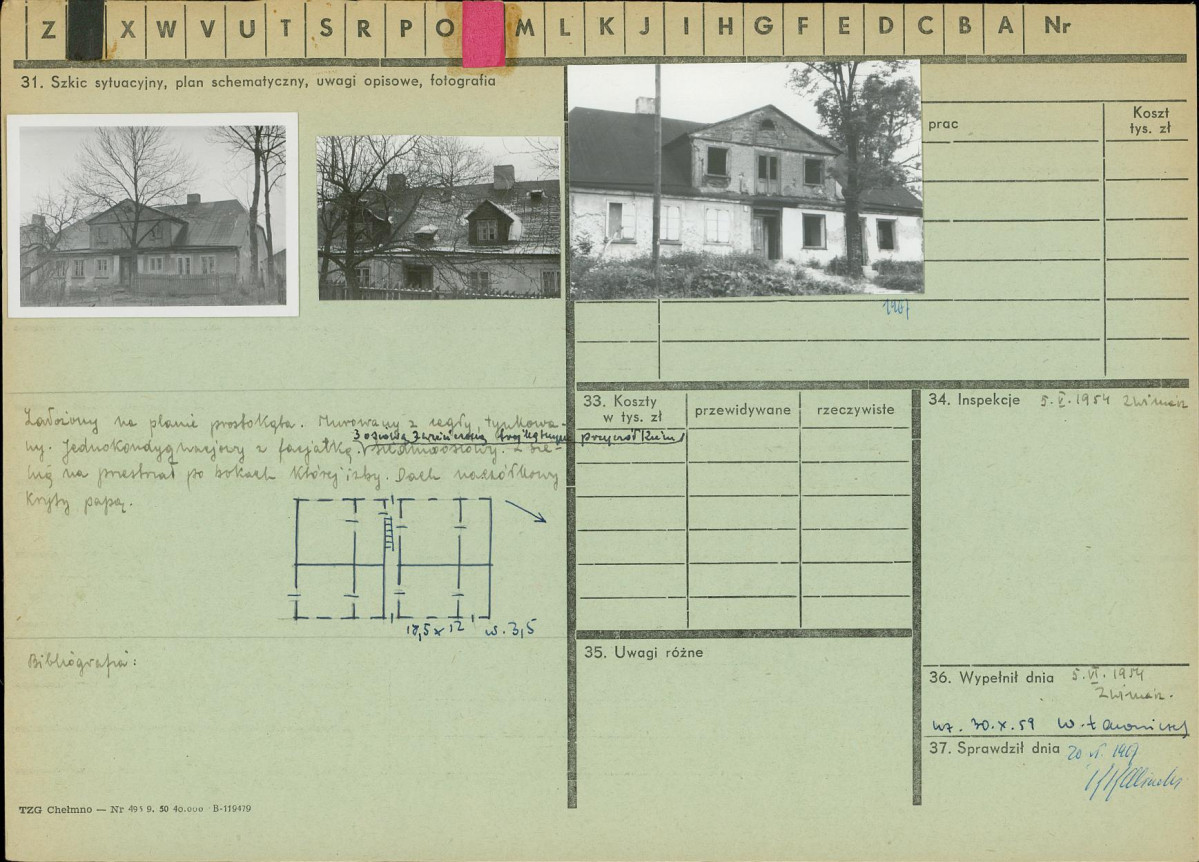 Z X W V U T S R P O M L K J I H G F E D C B A Nr
31. Szkic sytuacyjny, plan schematyczny, uwagi opisowe, fotografia
prac
Koszt
tys. zł
1967
Założony na planie prostokąta. Murowany z cegły, tynkowa-
3 osiową zwieńczoną trójkątnym przyczółkiem
ny. Jednokondygnacyjowy z facjatką. siedmioosiowy. Z sie-
nią na przestrzał po bokach której izby. Dach naczółkowy
kryty papą.
18,5 x 12 w. 3,5
Bibliografia:
33. Koszty
w tys. zł
przewidywane
rzeczywiste
34. Inspekcje 5. 1954
35. Uwagi różne
36. Wypełnił dnia 5. VI. 1954
30. X. 59
37. Sprawdził dnia 20 VI. 1967
TZG Chełmno — Nr 495 9. 50 40.000 B-119479